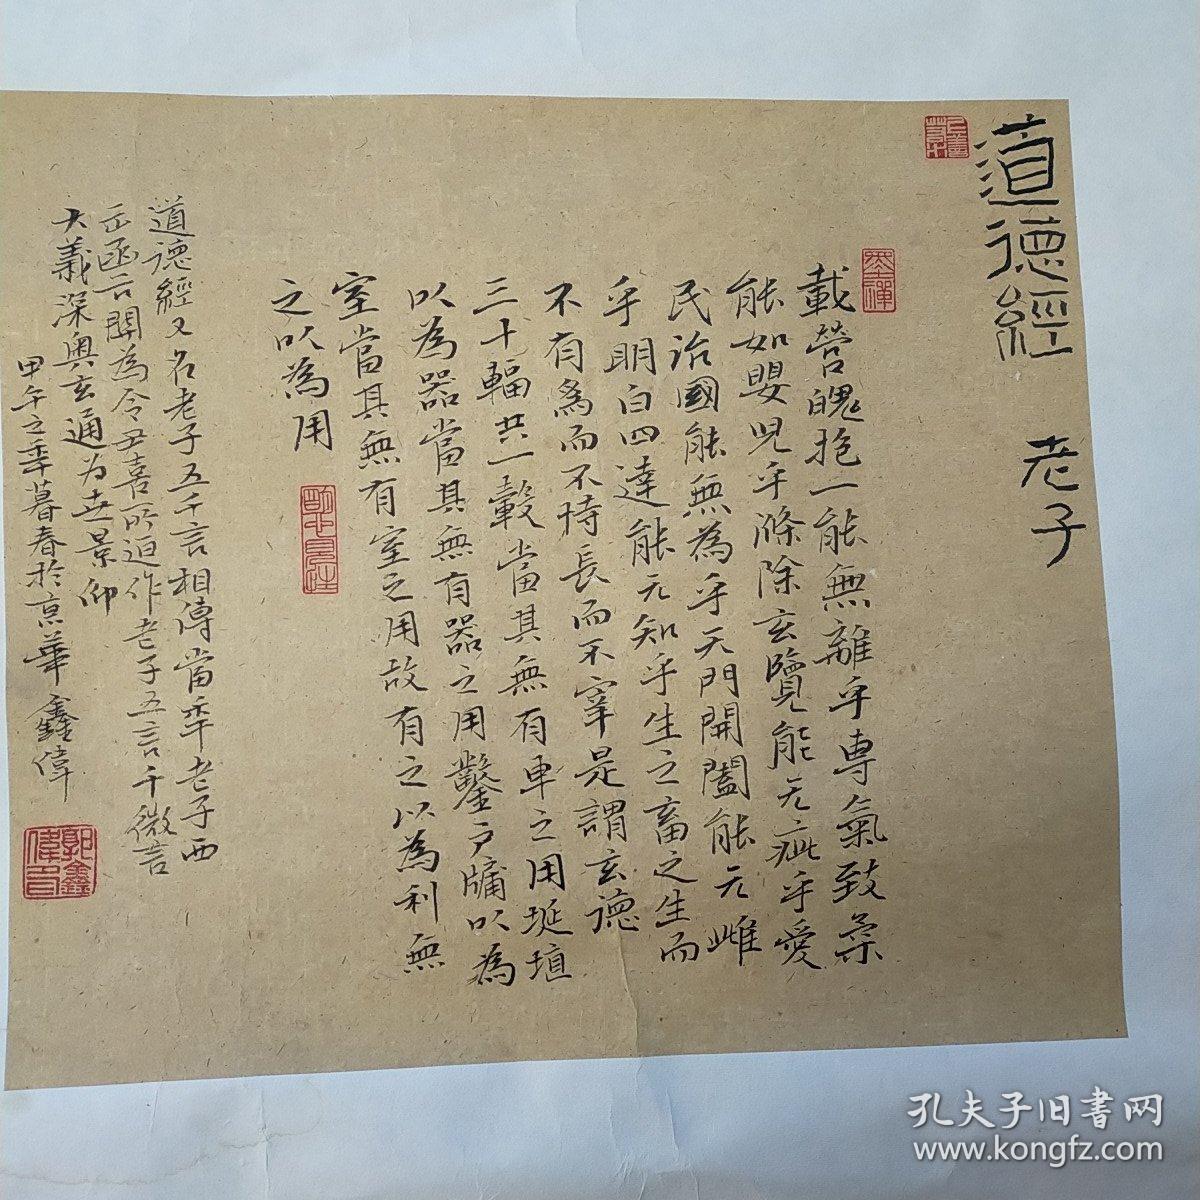 道德經
老子
載營魄抱一能無離乎專氣致柔
能如嬰兒乎滌除玄覽能无疵乎愛
民治國能無為乎天門開闔能无雌
乎明白四達能无知乎生之畜之生而
不有為而不恃長而不宰是謂玄德
三十輻共一轂當其無有車之用埏埴
以為器當其無有器之用鑿户牖以為
室當其無有室之用故有之以為利無
之以為用
道德經又名老子五千言相傳當年老子西
出函谷關為令尹喜所迫作老子五言千微言
大義深奥玄通为世景仰
甲午之季暮春於京華鑫偉
郭鑫偉印
孔夫子旧书网
www.kongfz.com